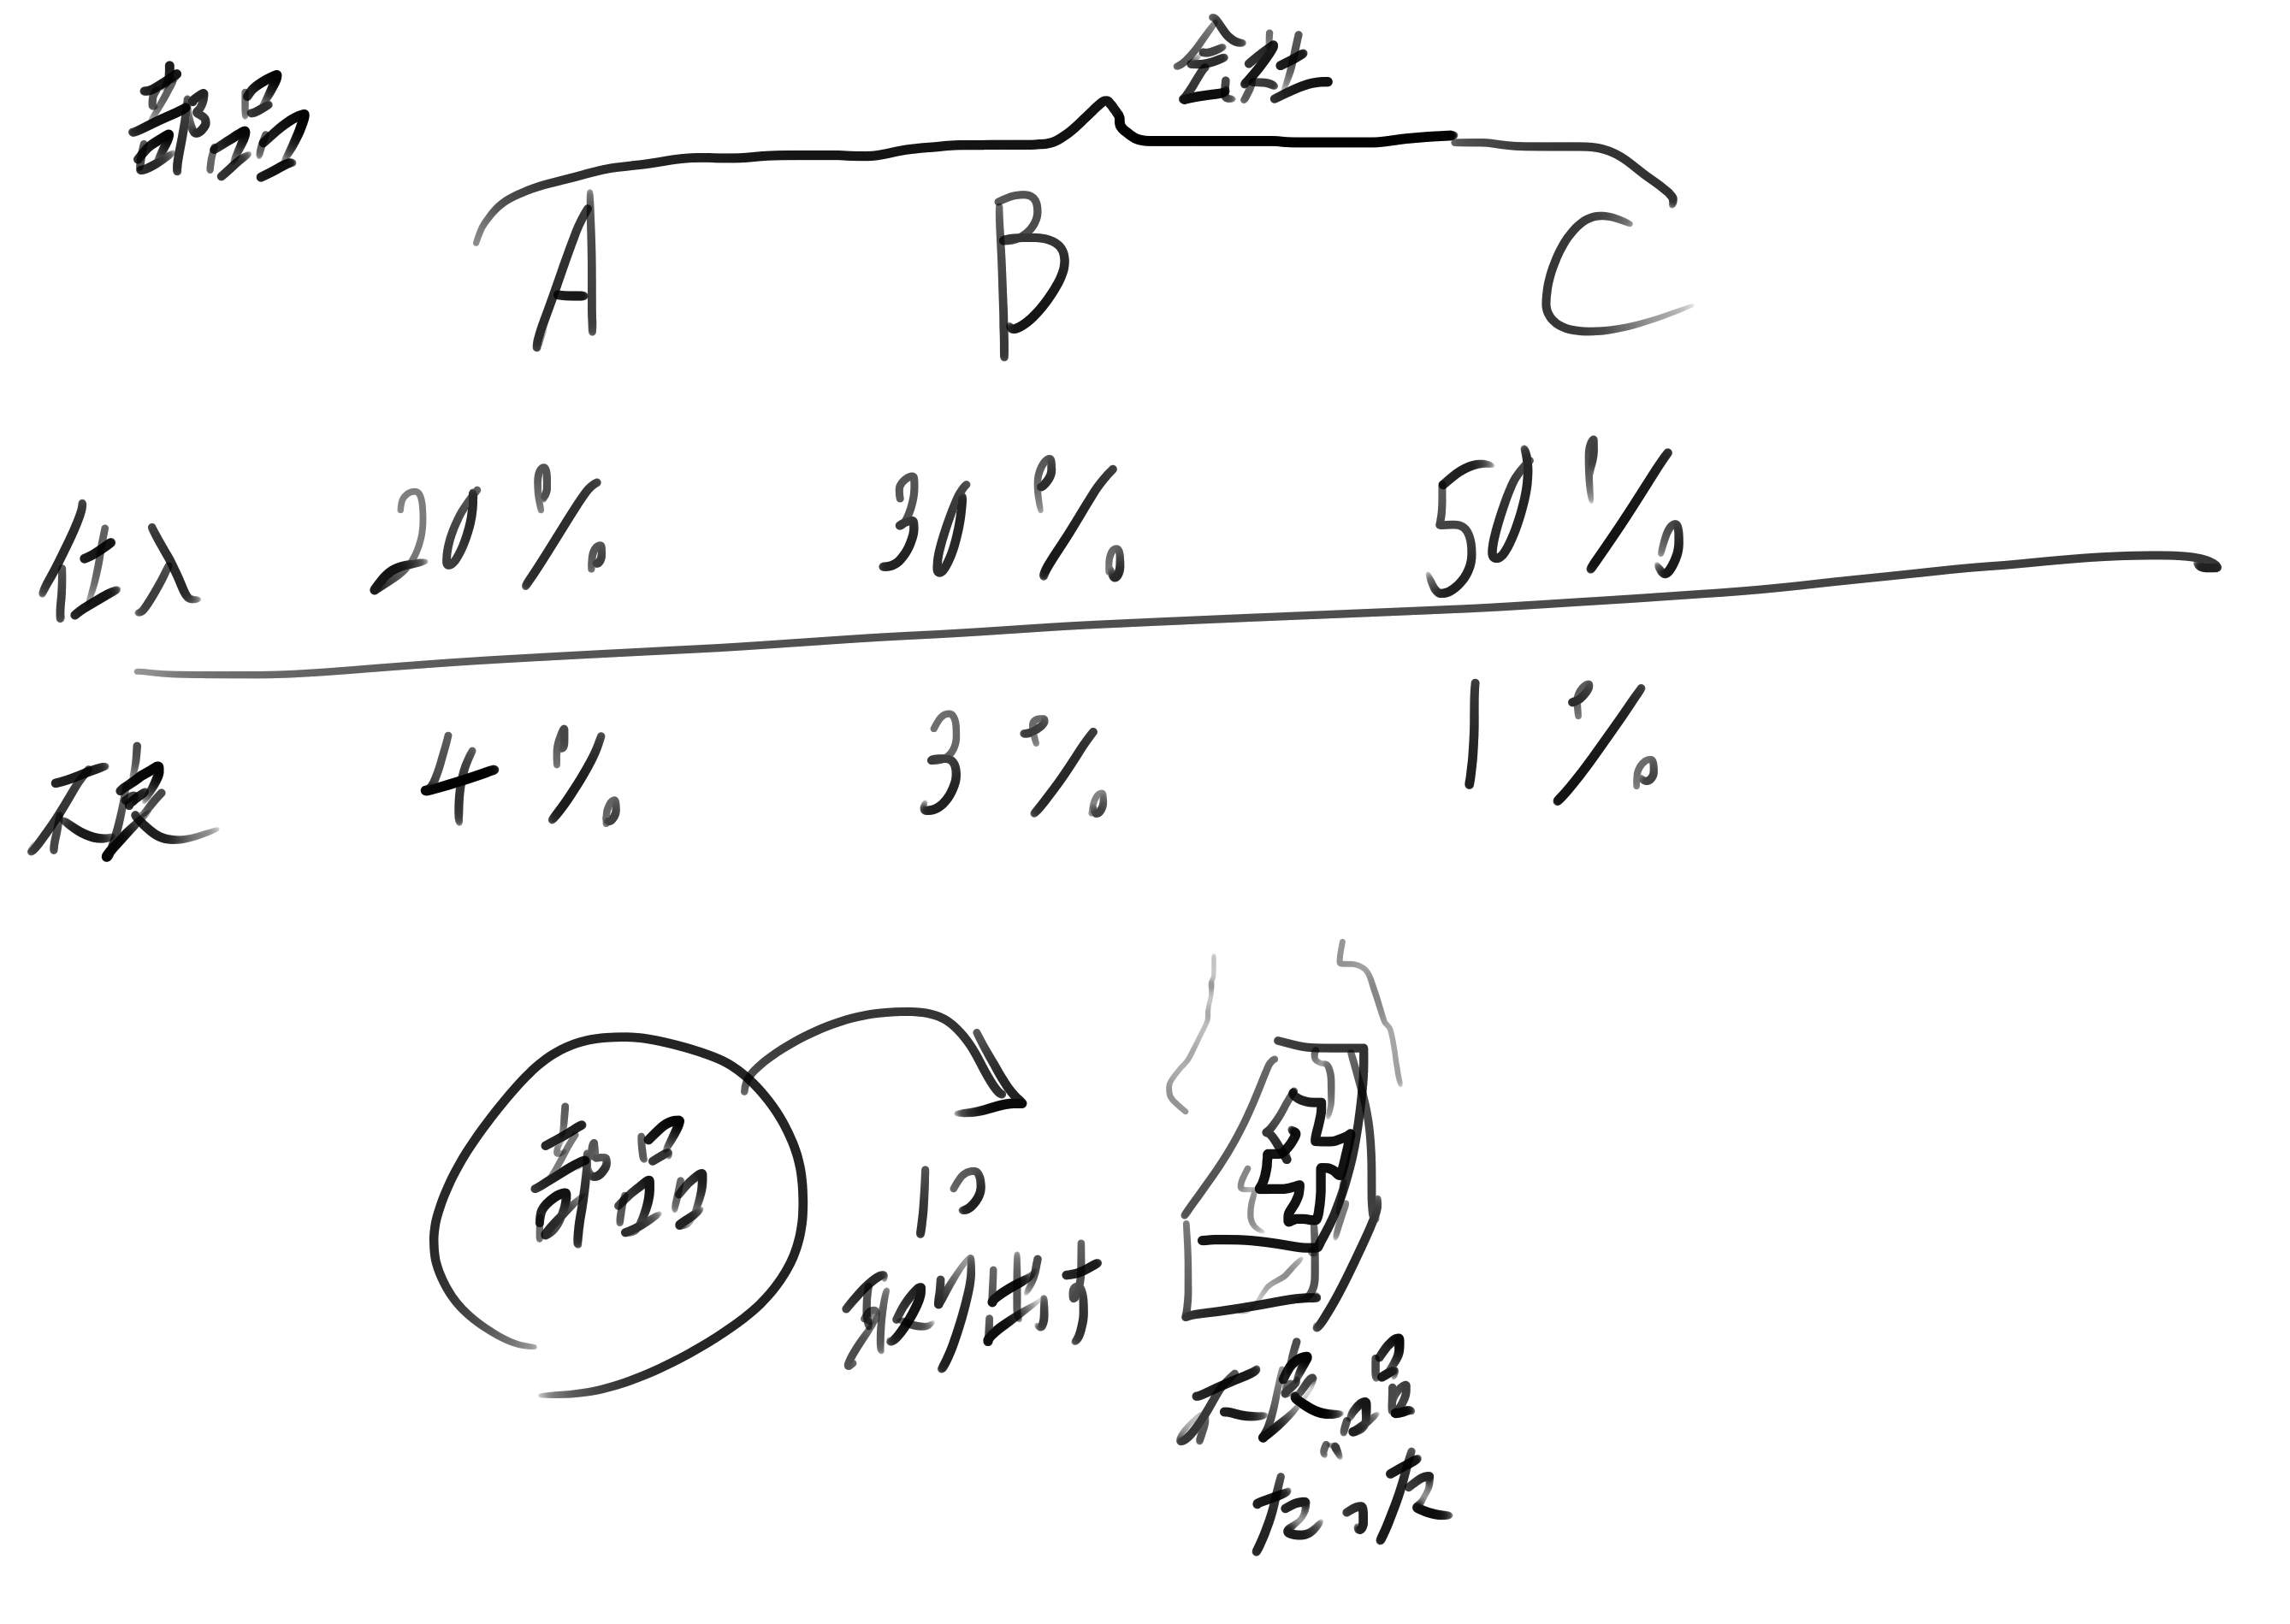 会社
部品
A B C
仕入 20% 30% 50%
不良 4% 3% 1%
部品
1つ
取り出す
不良品
だった